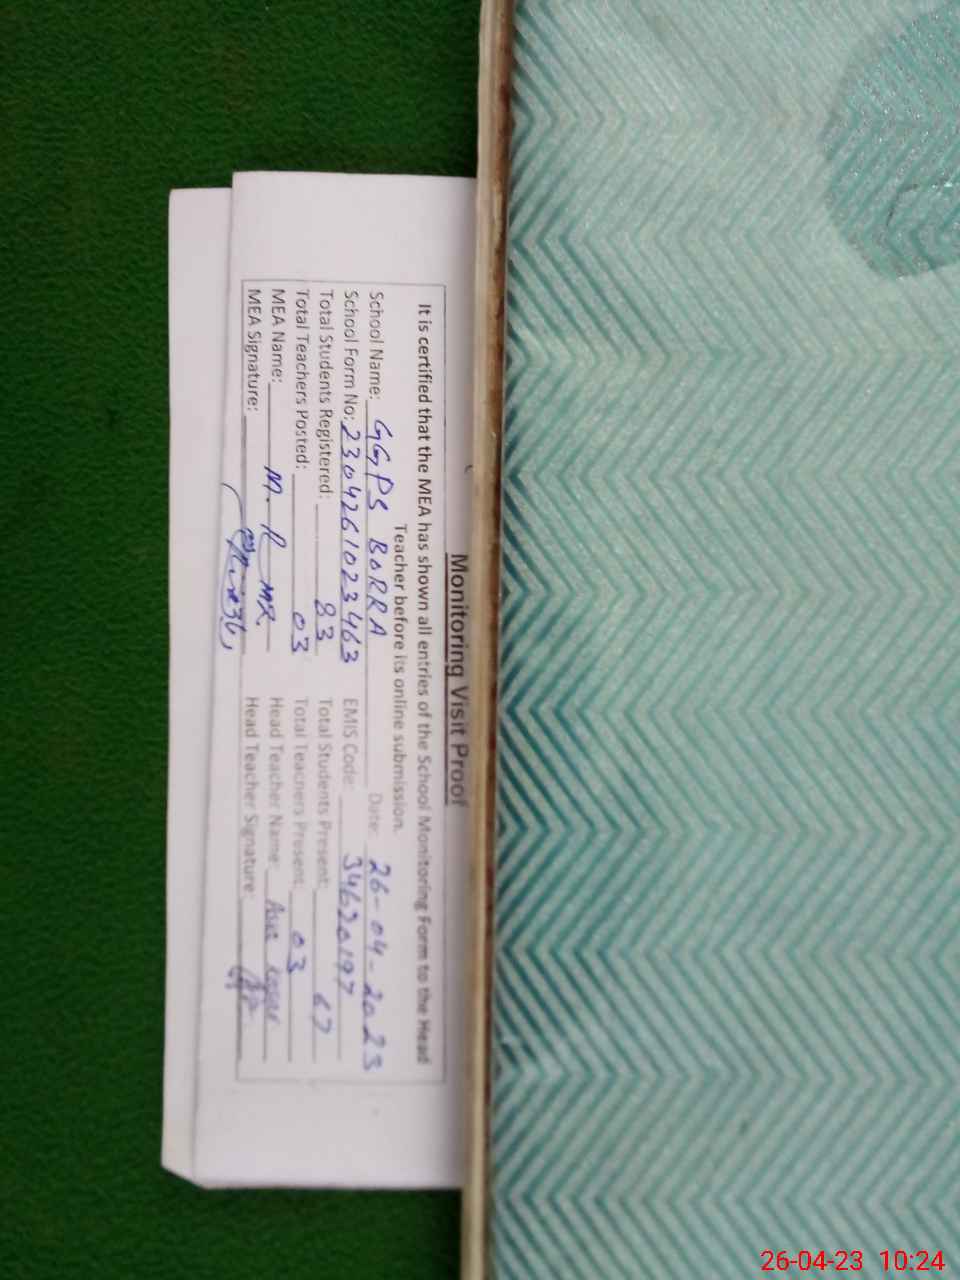 Monitoring Visit Proof
It is certified that the MEA has shown all entries of the School Monitoring Form to the Head
Teacher before its online submission.
School Name: GGPS BORRA Date: 26-04-2023
School Form No: 2304261023463 EMIS Code: 34620197
Total Students Registered: 83 Total Students Present: 67
Total Teachers Posted: 03 Total Teachers Present: 03
MEA Name: M. R Head Teacher Name:
MEA Signature: Head Teacher Signature:
26-04-23 10:24